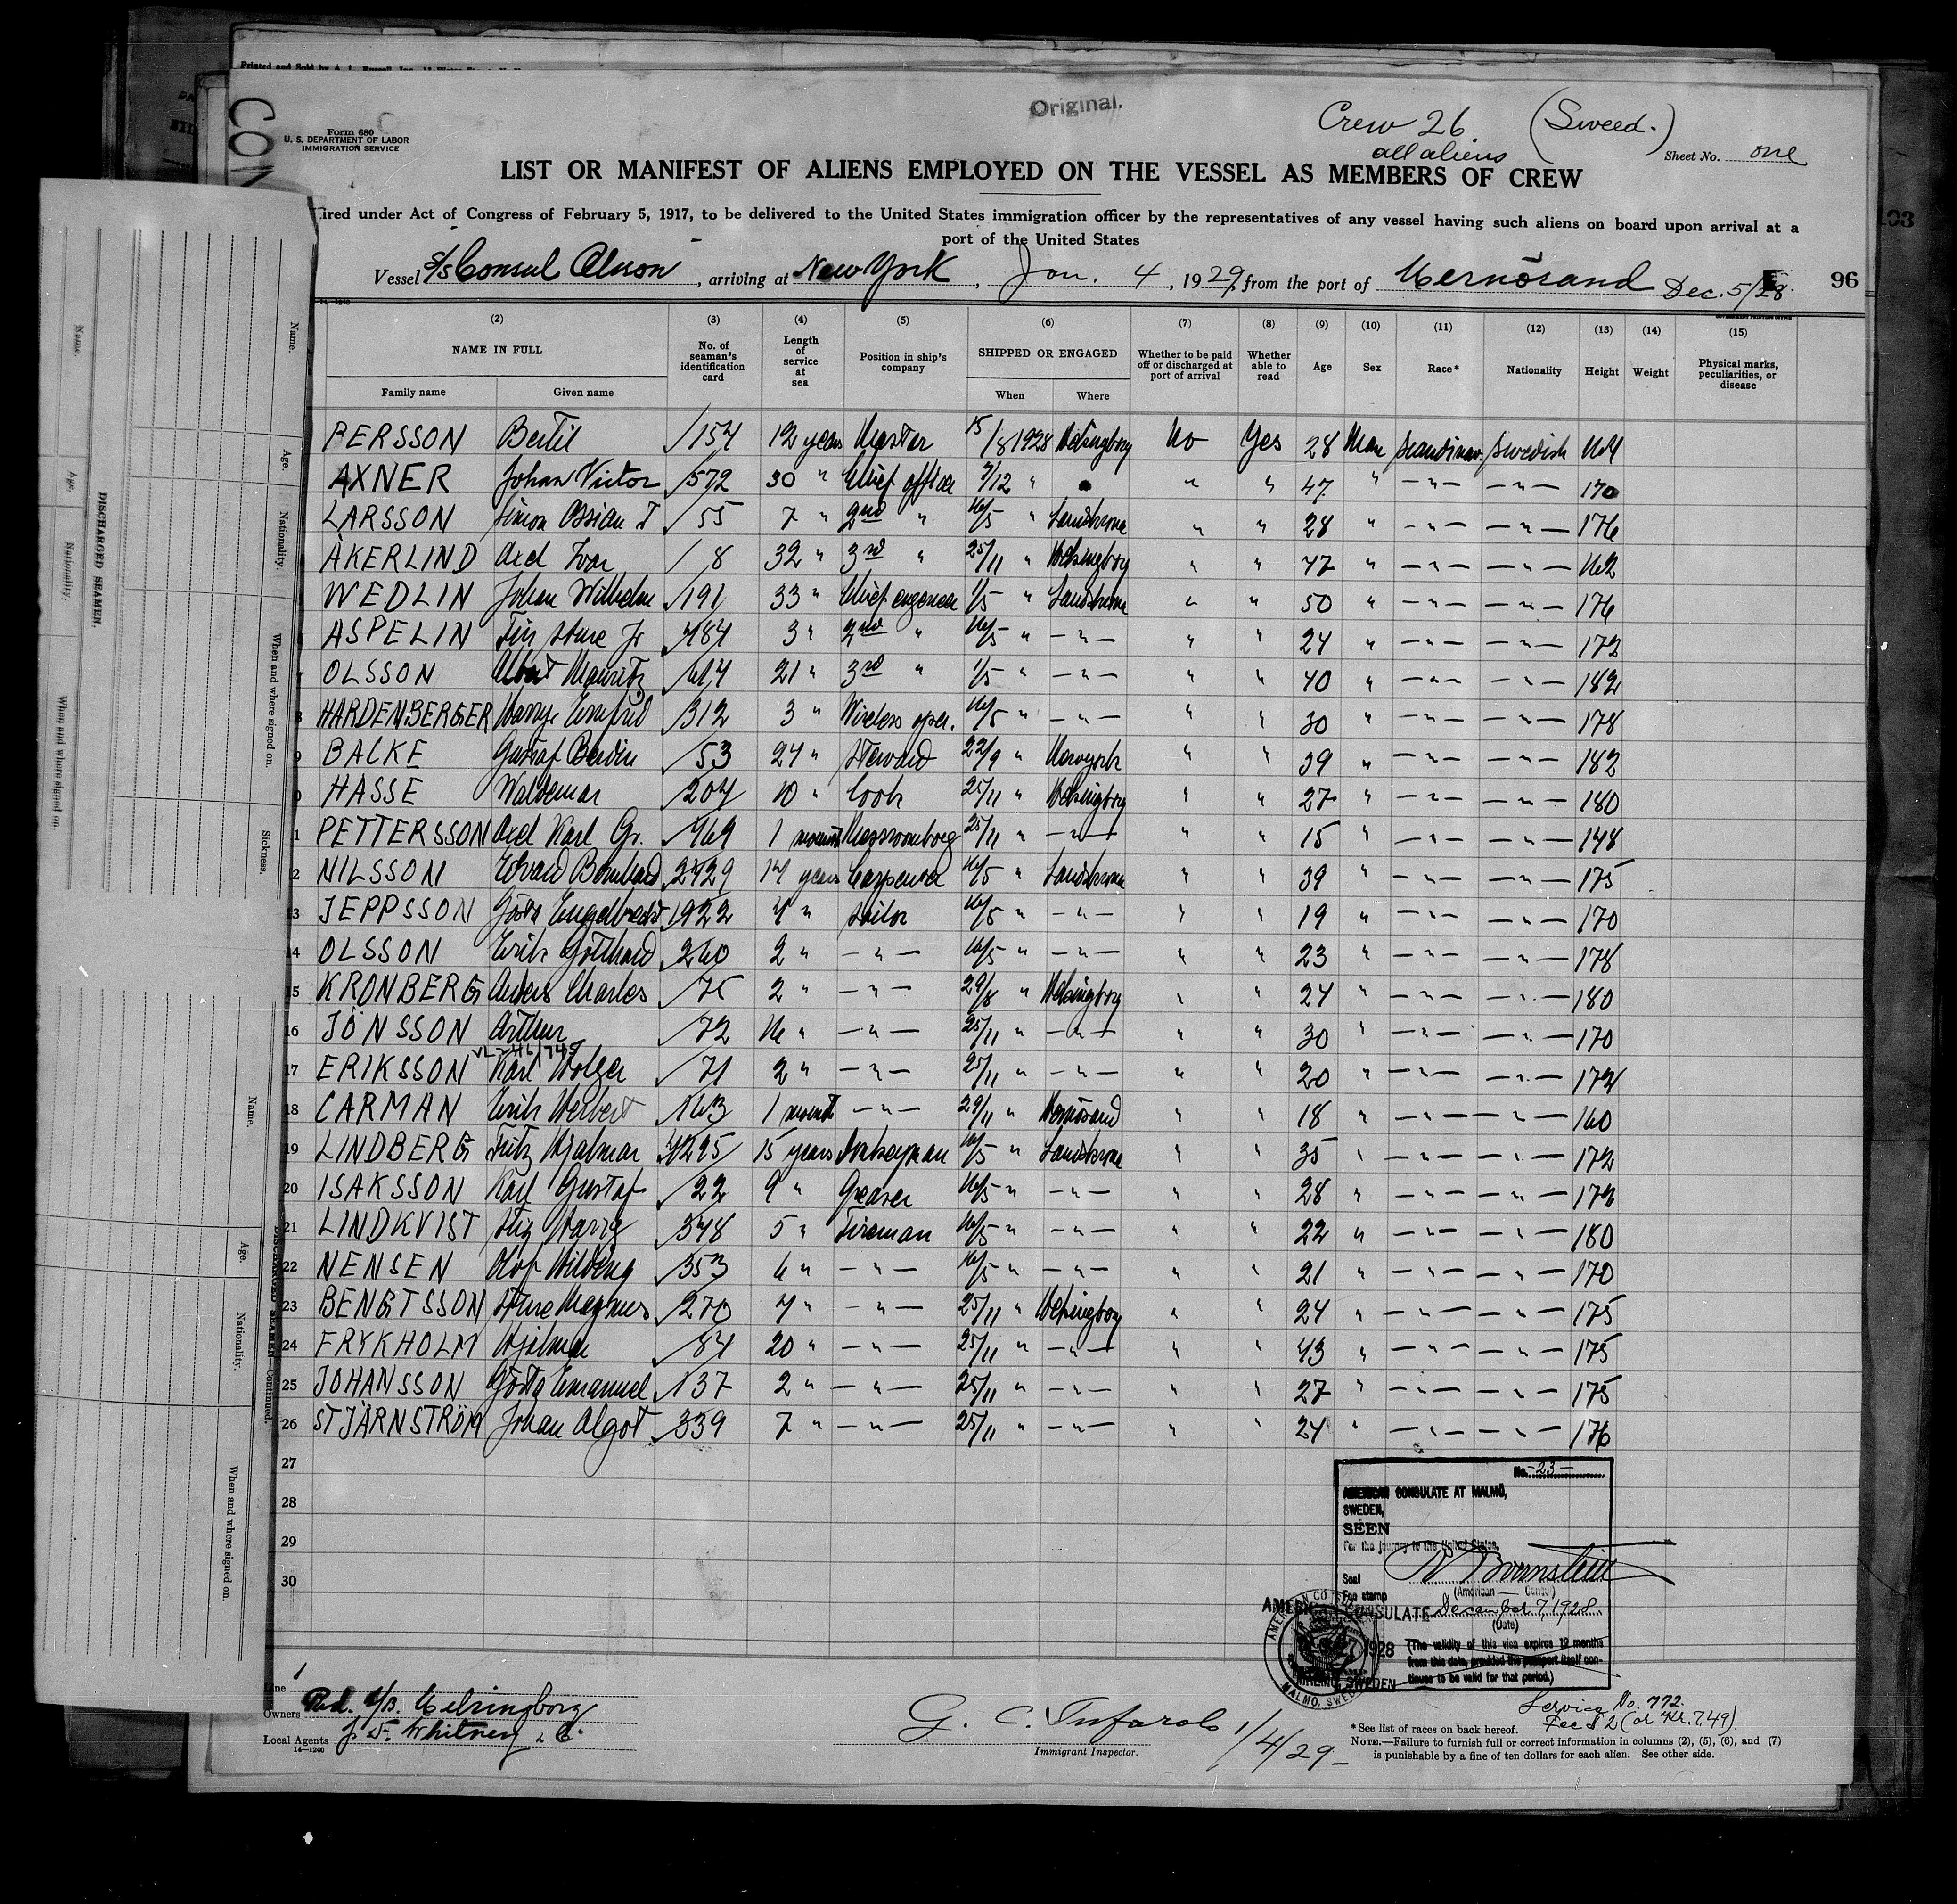 Printed and Sold by A. L. Russell, Inc.
Original.
Crew 26 (Sweed.)
all aliens
Form 680
U. S. DEPARTMENT OF LABOR
IMMIGRATION SERVICE
Sheet No. one
LIST OR MANIFEST OF ALIENS EMPLOYED ON THE VESSEL AS MEMBERS OF CREW
ired under Act of Congress of February 5, 1917, to be delivered to the United States immigration officer by the representatives of any vessel having such aliens on board upon arrival at a
port of the United States
Vessel S/S Consul Olsson, arriving at New York, Jan. 4, 1929, from the port of Hernösand Dec. 5/28. 96
(2) (3) (4) (5) (6) (7) (8) (9) (10) (11) (12) (13) (14) (15)
NAME IN FULL No. of seaman's identification card Length of service at sea Position in ship's company SHIPPED OR ENGAGED Whether to be paid off or discharged at port of arrival Whether able to read Age Sex Race* Nationality Height Weight Physical marks, peculiarities, or disease
Family name Given name When Where
PERSSON Bertil 154 12 years Master 15/8 1928 Helsingborg No Yes 28 Man Scandinav. Swedish
AXNER Johan Victor 572 30 " Chief officer 7/12 " " " 47 " — " — — " — 170
LARSSON Simon Ossian T 55 7 " 2nd " 16/5 " Landskrona " " 28 " — " — — " — 176
ÅKERLIND Axel Ivar 8 32 " 3rd " 25/11 " Helsingborg " " 47 " — " — — " — 162
WEDLIN Johan Wilhelm 191 33 " Chief engeneer 1/5 " Landskrona " " 50 " — " — — " — 176
ASPELIN Sture Jr 484 3 " 2nd " 16/5 " — " — " " 24 " — " — — " — 172
OLSSON Albert Mauritz 614 21 " 3rd " 1/5 " — " — " " 40 " — " — — " — 182
HARDENBERGER Harry Ernfrid 312 3 " Wireless oper. 16/5 " — " — " " 30 " — " — — " — 178
BALKE Gustaf Berwin 53 24 " Steward 22/9 " Newyork " " 39 " — " — — " — 182
HASSE Waldemar 204 10 " Cook 25/11 " Helsingborg " " 27 " — " — — " — 180
PETTERSSON Axel Karl G. 469 1 month Messroomboy 25/11 " — " — " " 15 " — " — — " — 148
NILSSON Edvard Bernhard 2429 14 years Carpenter 16/5 " Landskrona " " 39 " — " — — " — 175
13 JEPPSSON Gösta Engelbrecht 1922 4 " Sailor 16/5 " — " — " " 19 " — " — — " — 170
14 OLSSON Erik Gotthard 260 2 " — " — 16/5 " — " — " " 23 " — " — — " — 178
15 KRONBERG Anders Charles 75 2 " — " — 29/8 " Helsingborg " " 24 " — " — — " — 180
16 JÖNSSON Arthur 72 16 " — " — 25/11 " — " — " " 30 " — " — — " — 170
17 ERIKSSON Karl Holger 71 2 " — " — 25/11 " — " — " " 20 " — " — — " — 174
18 CARMAN Erik Herbert 163 1 month — " — 29/11 " Hernösand " " 18 " — " — — " — 160
19 LINDBERG Fritz Hjalmar 4295 15 years Donkeyman 16/5 " Landskrona " " 35 " — " — — " — 172
20 ISAKSSON Karl Gustaf 22 9 " Greaser 16/5 " — " — " " 28 " — " — — " — 172
21 LINDKVIST Stig Harry 348 5 " Fireman 16/5 " — " — " " 22 " — " — — " — 180
22 NENSEN Olof Hilding 353 6 " — " — 16/5 " — " — " " 21 " — " — — " — 170
23 BENGTSSON Sture Magnus 270 4 " — " — 25/11 " Helsingborg " " 24 " — " — — " — 175
24 FRYKHOLM Hjalmar 84 20 " — " — 25/11 " — " — " " 43 " — " — — " — 175
25 JOHANSSON Gösta Emanuel 137 2 " — " — 25/11 " — " — " " 27 " — " — — " — 175
26 STJÄRNSTRÖM Johan Algot 339 7 " — " — 25/11 " — " — " " 24 " — " — — " — 176
27
28
29
30
No. -23-
AMERICAN CONSULATE AT MALMÖ,
SWEDEN,
SEEN
For the journey to the United States.
Seal
Fee stamp
(American Consul)
AMERICAN CONSULATE December 7, 1928
(Date)
(The validity of this visa expires 12 months
from this date, provided the passport itself con-
tinues to be valid for that period.)
MALMÖ, SWEDEN
Service No. 772.
Fee $ 2 (or Kr. 7,49).
Line
Owners Red. A/B. Helsingborg
Local Agents J. F. Whitney & Co.
14—1240
Immigrant Inspector.
1/4/29
*See list of races on back hereof.
NOTE.—Failure to furnish full or correct information in columns (2), (5), (6), and (7)
is punishable by a fine of ten dollars for each alien. See other side.
DISCHARGED SEAMEN.
Name. Age. Nationality. When and where signed on. Sickness.
DISCHARGED SEAMEN—Continued.
Name. Age. Nationality. When and where signed on.